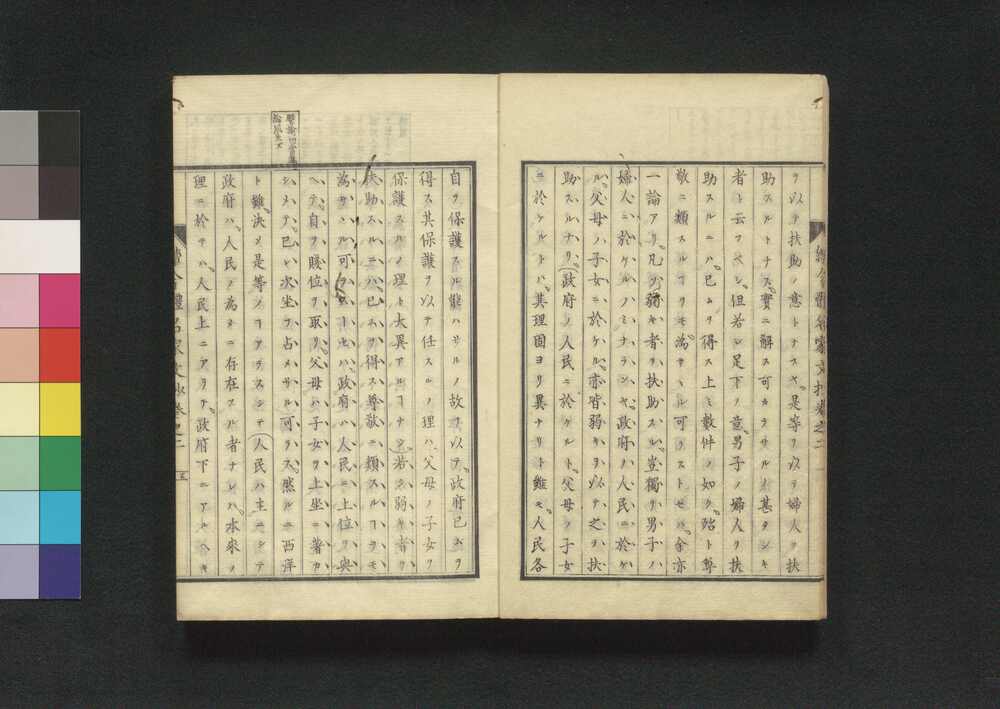 ヲ以テ扶助ノ意トナスヤ是等ヲ以テ婦人ヲ扶
助スルトナス實ニ解ス可カラサルノ甚タシキ
者ト云フベシ但若シ足下ノ意男子ノ婦人ヲ扶
助スルニハ已ムヲ得ス上ミ數件ノ如ク殆ト尊
敬ニ類スルヿヲモ為サヽル可ラストセハ余亦
一論アリ凡ソ弱キ者ヲ扶助スル豈獨リ男子ノ
婦人ニ於ケルノミナランヤ政府ノ人民ニ於ケ
ル父母ノ子女ニ於ケル亦皆弱キヲ以テ之ヲ扶
助スルナリ政府ノ人民ニ於ケルト父母ノ子女
ニ於ケルトハ其理固ヨリ異ナリト雖モ人民各
自ヲ保護スル能ハサルノ故ヲ以テ政府已ムヲ
得ス其保護ヲ以テ任スルノ理ハ父母ノ子女ヲ
保護スルノ理ト大異アルヿナシ若シ弱キ者ヲ
扶助スルニハ已ムヲ得ス尊敬ニ類スルヿヲモ
為サヽル可ラストセハ政府ハ人民ニ上位ヲ與
ヘテ自ラ賤位ヲ取リ父母ハ子女ヲ上坐ニ著カ
シメテ己レ次坐ヲ占メサル可ラス然ルニ西洋
ト雖決メ是等ノヿアラスシテ人民ハ主ニシテ
政府ハ人民ノ為メニ存在スル者ナレハ本來ノ
理ニ於テハ人民上ニアリテ政府下ニアルヘキ